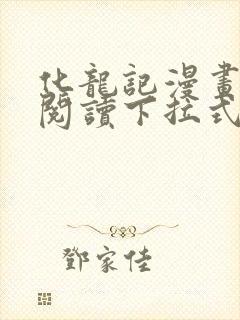 化龍記漫畫
閱讀下拉式
鄧家佳